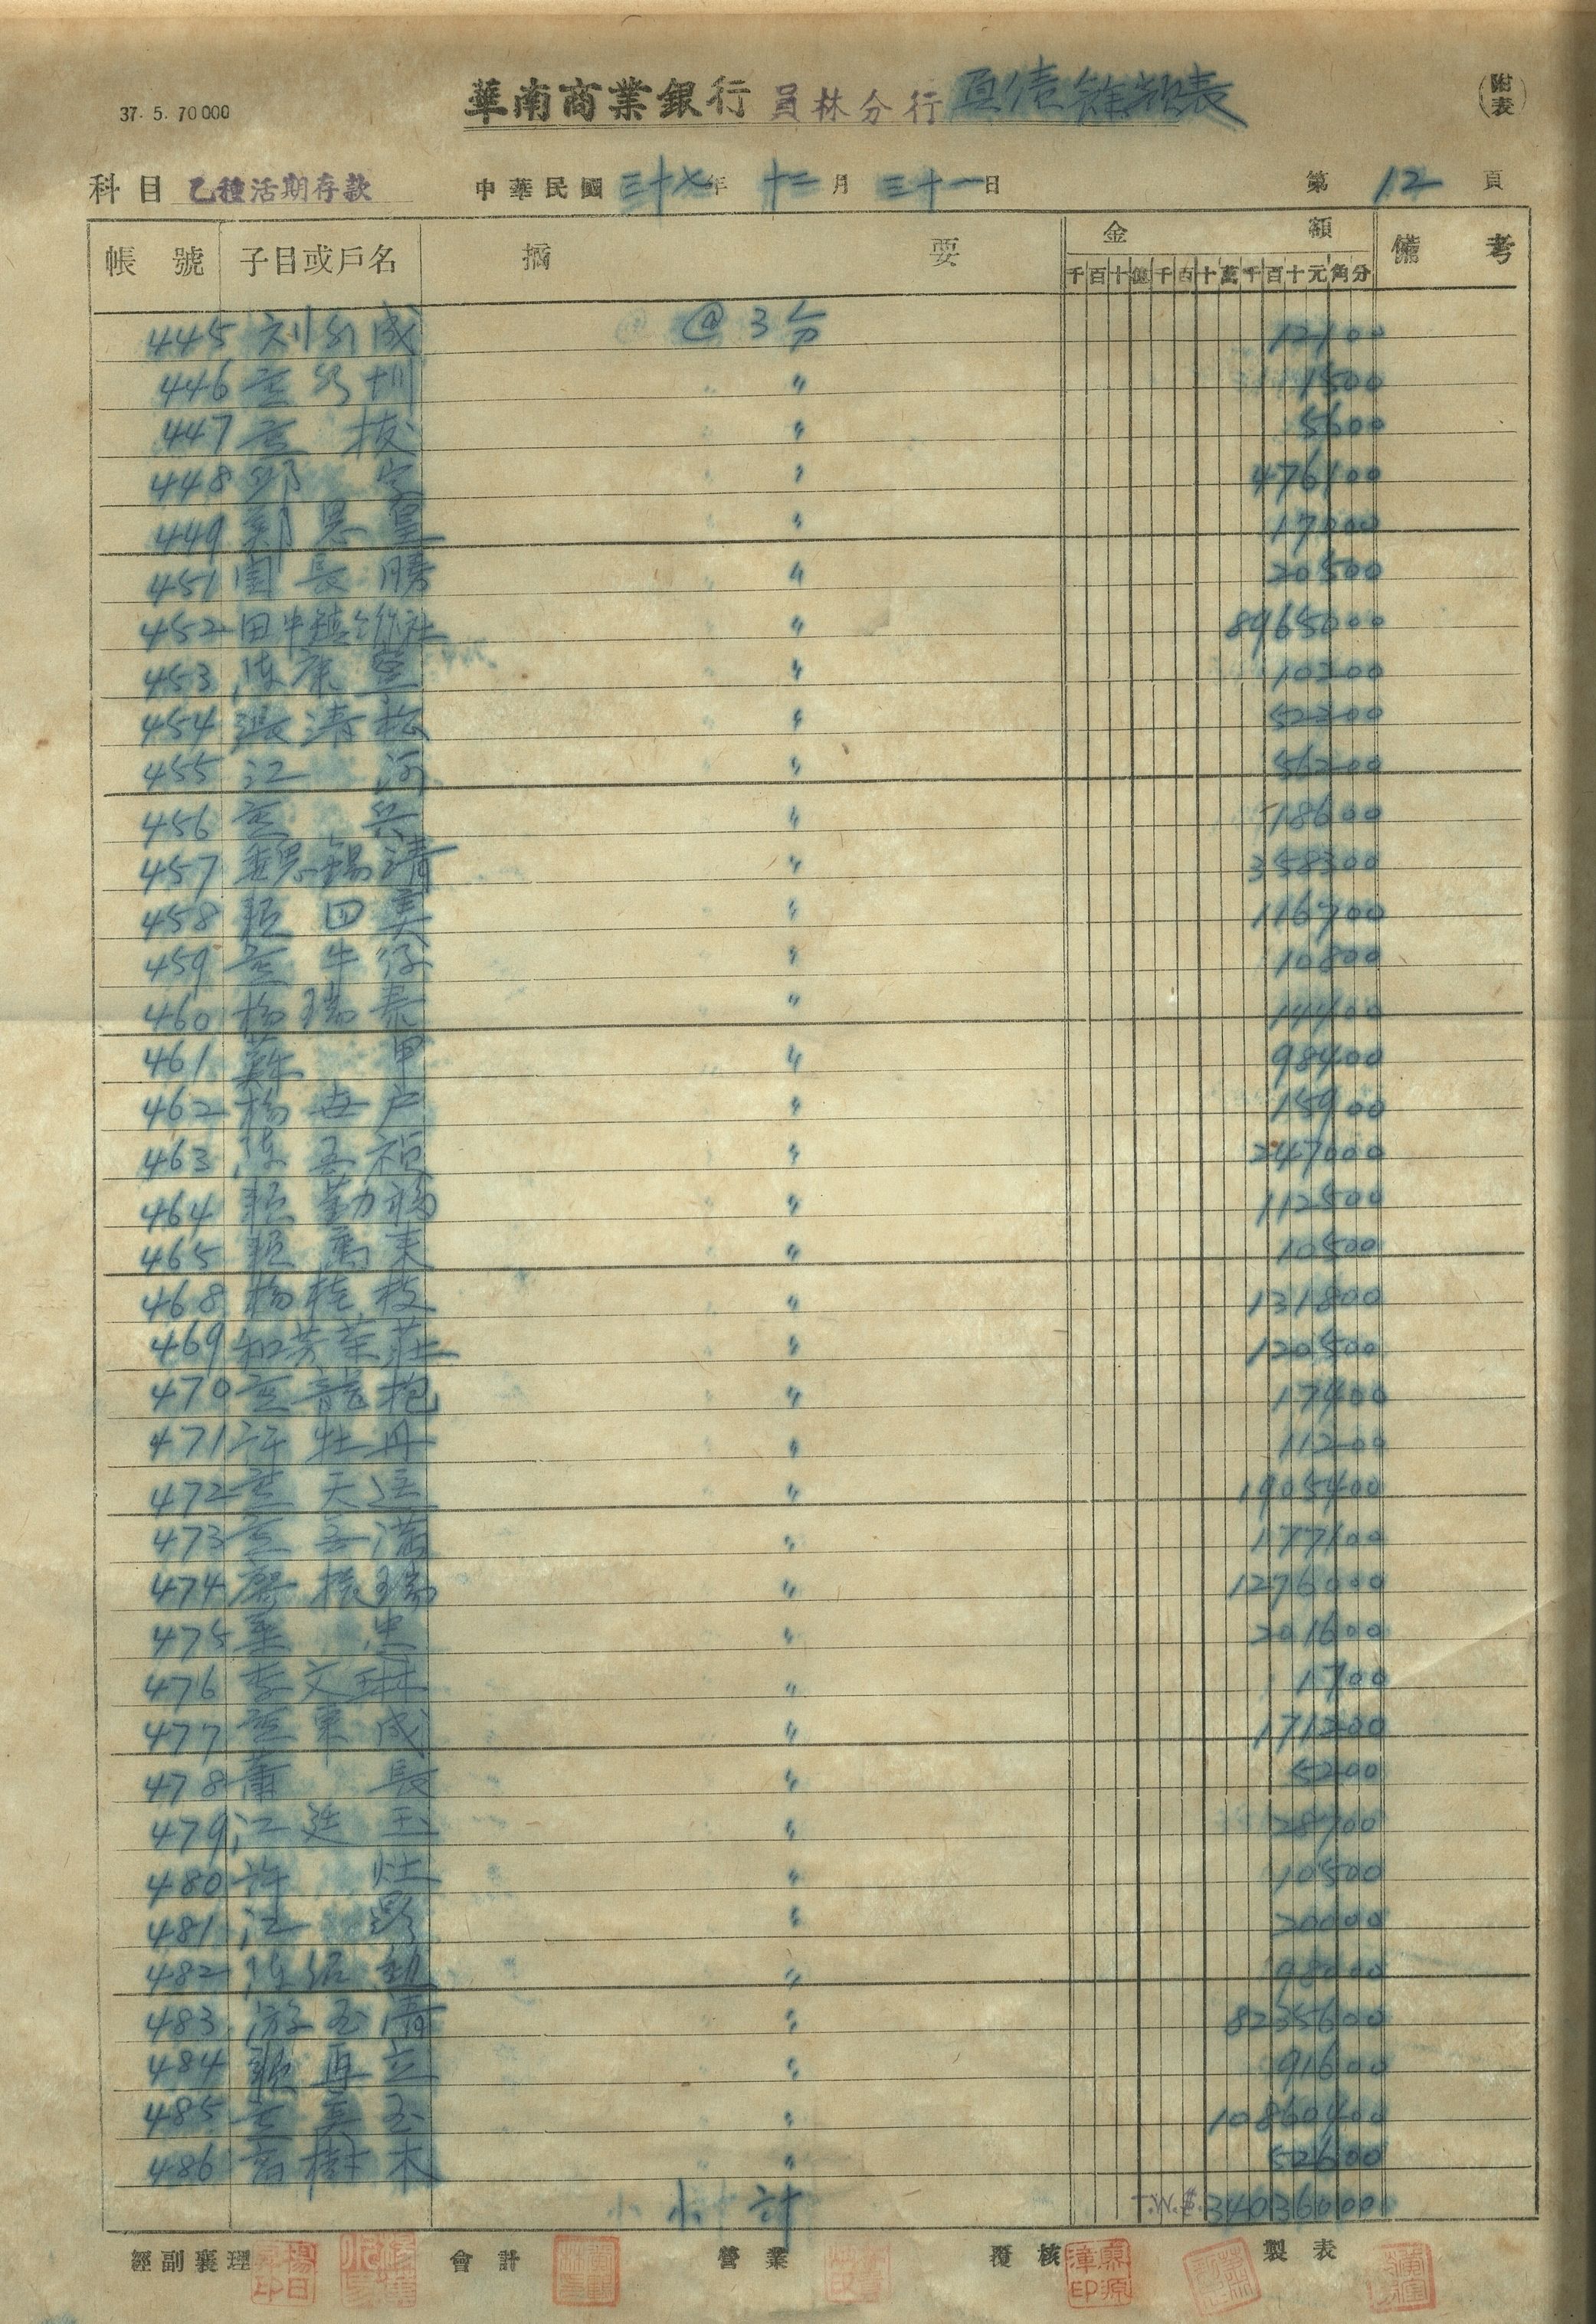 37. 5. 70000
華南商業銀行 員林分行 負債餘額表
(附表)
科目 乙種活期存款 中華民國 三十七年 十二月 三十一日 第 12 頁
帳號 子目或戶名 摘要 金額 備考
千百十億千百十萬千百十元角分
445 刘 成 @ 3分 12100
446 圳 〃 1500
447 〃 5600
448 邱 〃 476100
449 鄭 皇 〃 17000
451 長勝 〃 20500
452 田中鎮 社 〃 8965000
453 陳 〃 10200
454 張清松 〃 52300
455 江 河 〃 56200
456 〃 18600
457 魏錫清 〃 358300
458 賴四美 〃 116700
459 牛仔 〃 10800
460 楊瑞泰 〃 14400
461 蘇 甲 〃 98400
462 楊世户 〃 15900
463 陳玉禎 〃 247000
464 賴勤福 〃 112500
465 賴萬来 〃 10500
468 楊桂枝 〃 131800
469 和芳茶莊 〃 120500
470 龍抱 〃 17400
471 許牡丹 〃 11200
472 天送 〃 1905400
473 玉满 〃 177100
474 詹振瑞 〃 1276000
475 葉 忠 〃 201600
476 李文琳 〃 1700
477 東成 〃 171200
478 蕭 長 〃 5200
479 江廷玉 〃 28700
480 許 灶 〃 10500
481 江 〃 20000
482 陳紹 〃 98000
483 游玉清 〃 8235600
484 賴再立 〃 91600
485 玉 〃 10860400
486 樹木 〃 52600
小計 T.W.$. 34036000
經副襄理 會計 營業 覆核 製表